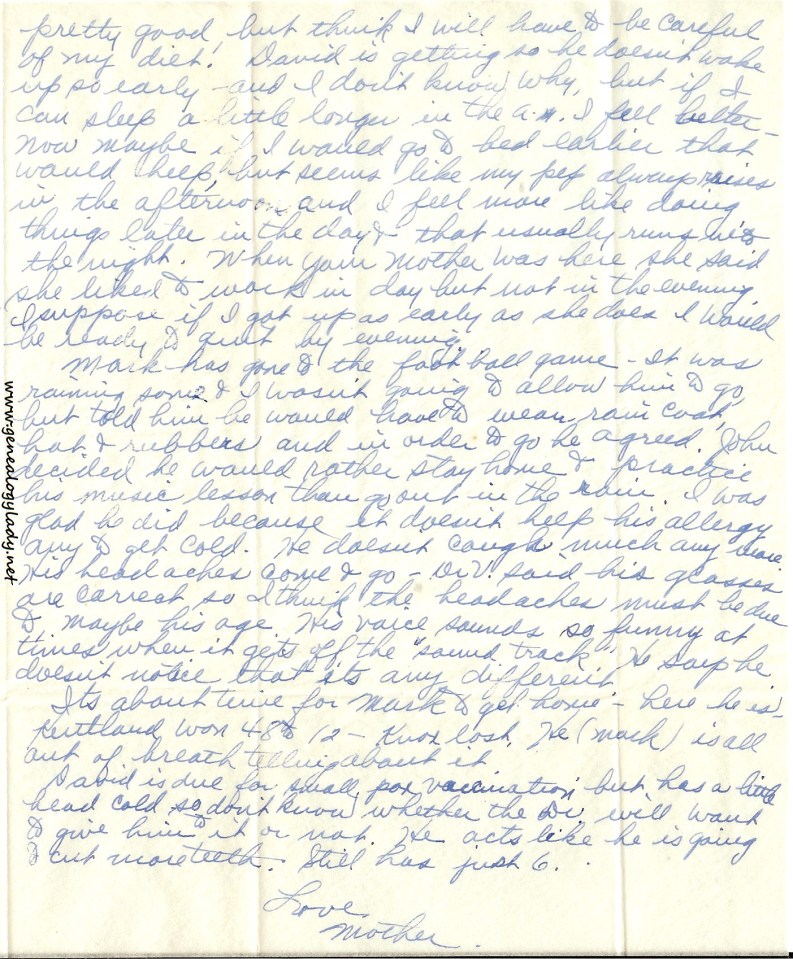 pretty good, but think I will have to be careful
of my diet! David is getting so he doesn't wake
up so early - and I don't know why, but if I
can sleep a little longer in the a.m. I feel better -
Now maybe if I would go to bed earlier that
would help, but seems like my pep always raises
in the afternoon and I feel more like doing
things later in the day & that usually runs into
the night. When your Mother was here she said
she liked to work in day but not in the evening.
I suppose if I got up as early as she does I would
be ready to quit by evening.
Mark has gone to the football game - It was
raining some & I wasn't going to allow him to go,
but told him he would have to wear rain coat,
hat & rubbers and in order to go he agreed. John
decided he would rather stay home & practice
his music lesson than go out in the rain. I was
glad he did because it doesn't help his allergy
any to get cold. He doesn't cough much any more.
His headaches come & go - Dr V. said his glasses
are correct so I think the headaches must be due
to maybe his age. His voice sounds so funny at
times when it gets off the "sound track". He says he
doesn't notice that its any different.
Its about time for Mark to get home - here he is -
Kentland won 48 to 12 - Knox lost. He (Mark) is all
out of breath telling about it.
David is due for small pox vaccination but has a little
head cold so don't know whether the Dr. will want
to give him it or not. He acts like he is going
to cut more teeth. Still has just 6.
Love,
Mother.
www.genealogylady.net